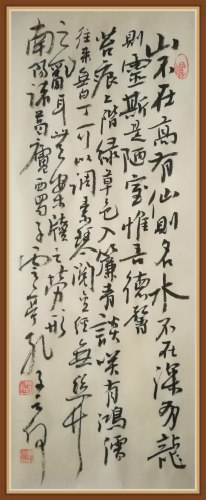 山不在高有仙則名水不在深有龍
則靈斯是陋室惟吾德馨
苔痕上階綠草色入簾青談咲有鴻儒
往来無白丁可以調素琴閱金經無絲竹
之亂耳無案牘之勞形
南陽諸葛廬西蜀子雲亭孔子云何